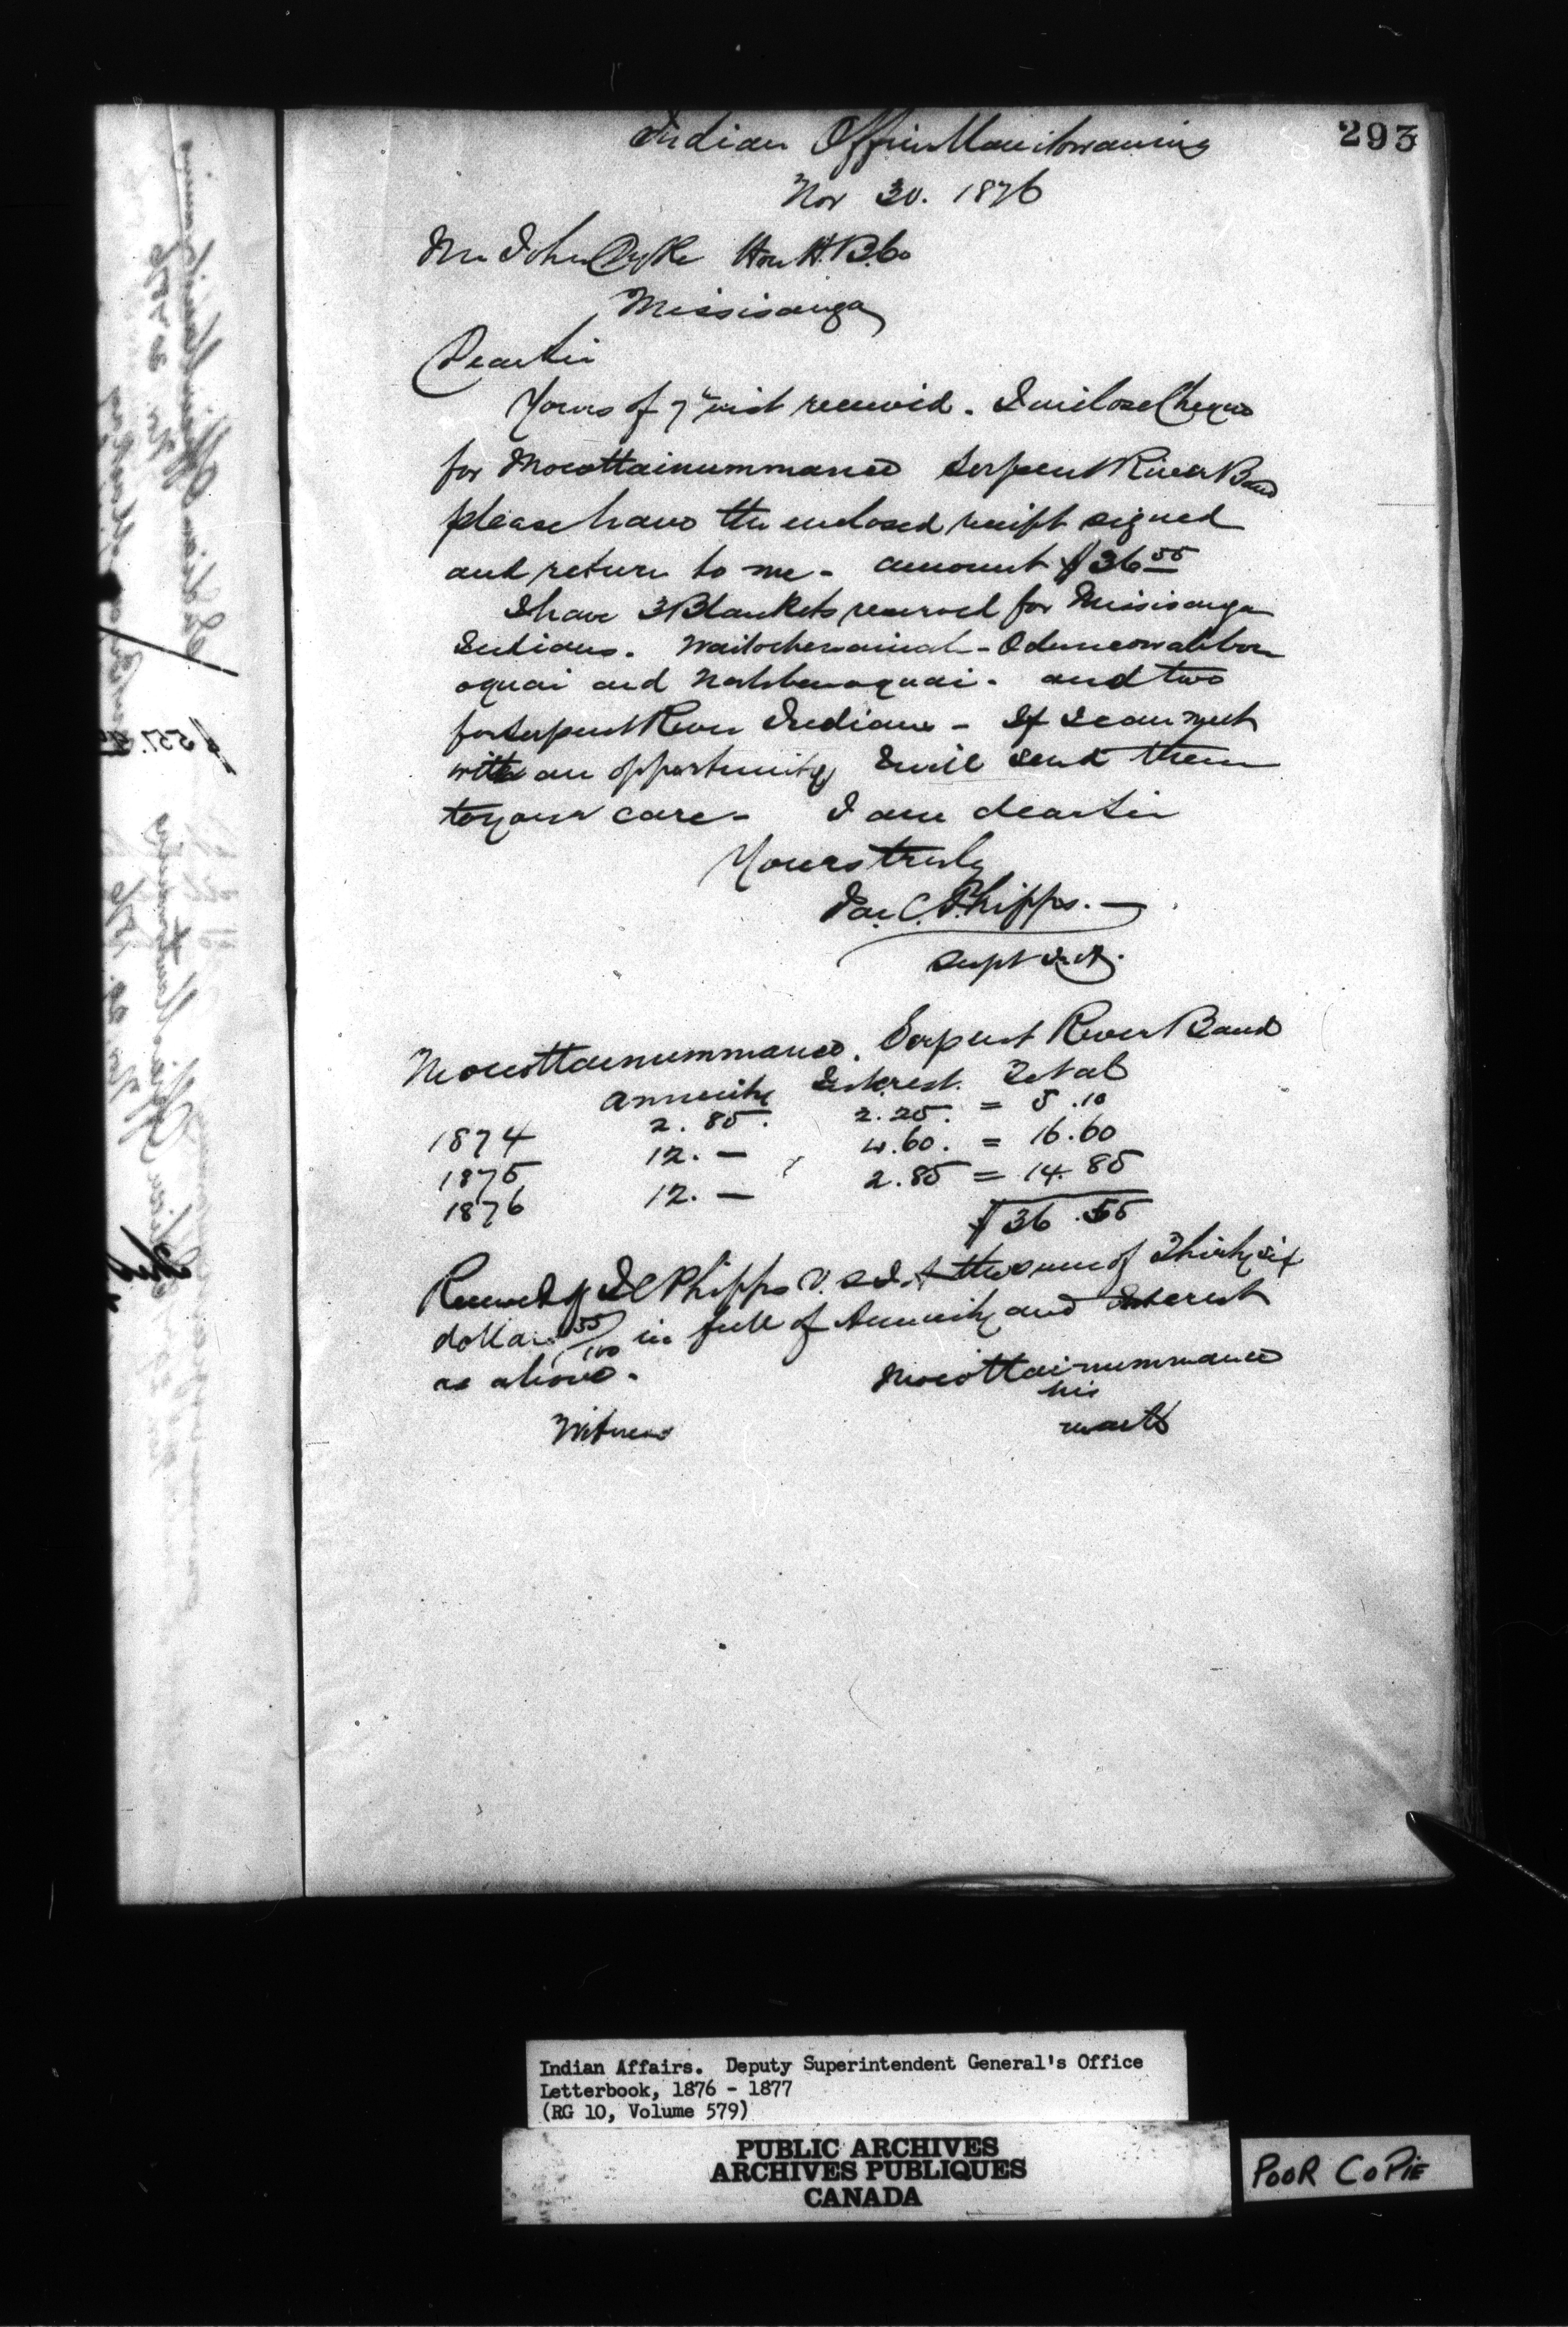 293
Indian Office Manitowaning
Nov 30. 1876
Mr John Dyke Hon H.B.Co
Missisauga
Dear Sir
Yours of 7th inst received. I inclose Cheque
for Mocottainummance Serpent River Band
please have the enclosed receipt signed
and return to me - amount $36 55
I have 3 Blankets reserved for Missisauga
Indians.
oquai and and two
for Serpent River Indians - If I can meet
with an opportunity I will send them
to your care - I am dear Sir
Yours truly
Jas. C. Phipps. -
Supt I.A.
Mocottainummance. Serpent River Band
Annuity Interest. Total
1874 2.85. 2.25. = 5.10
1875 12. - 4.60. = 16.60
1876 12. - 2.85 = 14.85
$36.55
Received of J C Phipps V.S.I.A the sum of Thirty six
dollars 55/100 in full of Annuity and Interest
as above.
Mocottainummance
his
Witness mark
Indian Affairs. Deputy Superintendent General's Office
Letterbook, 1876 - 1877
(RG 10, Volume 579)
PUBLIC ARCHIVES
ARCHIVES PUBLIQUES
CANADA
POOR COPIE